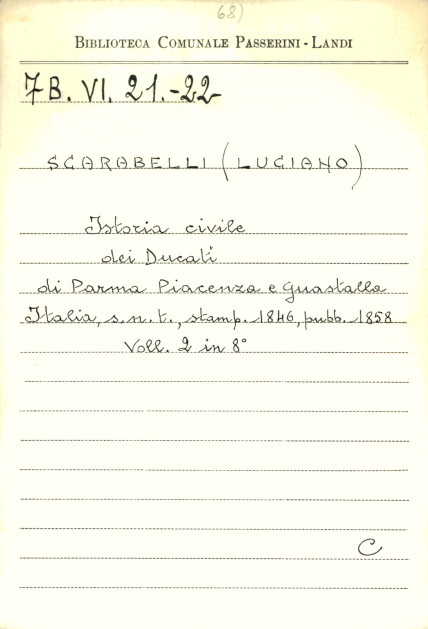 68)
BIBLIOTECA COMUNALE PASSERINI-LANDI
7B. VI. 21.-22
SCARABELLI (LUCIANO)
Istoria civile
dei Ducati
di Parma Piacenza e Guastalla
Italia, s.n.t., stamp. 1846, pubb. 1858
Voll. 2 in 8°
C